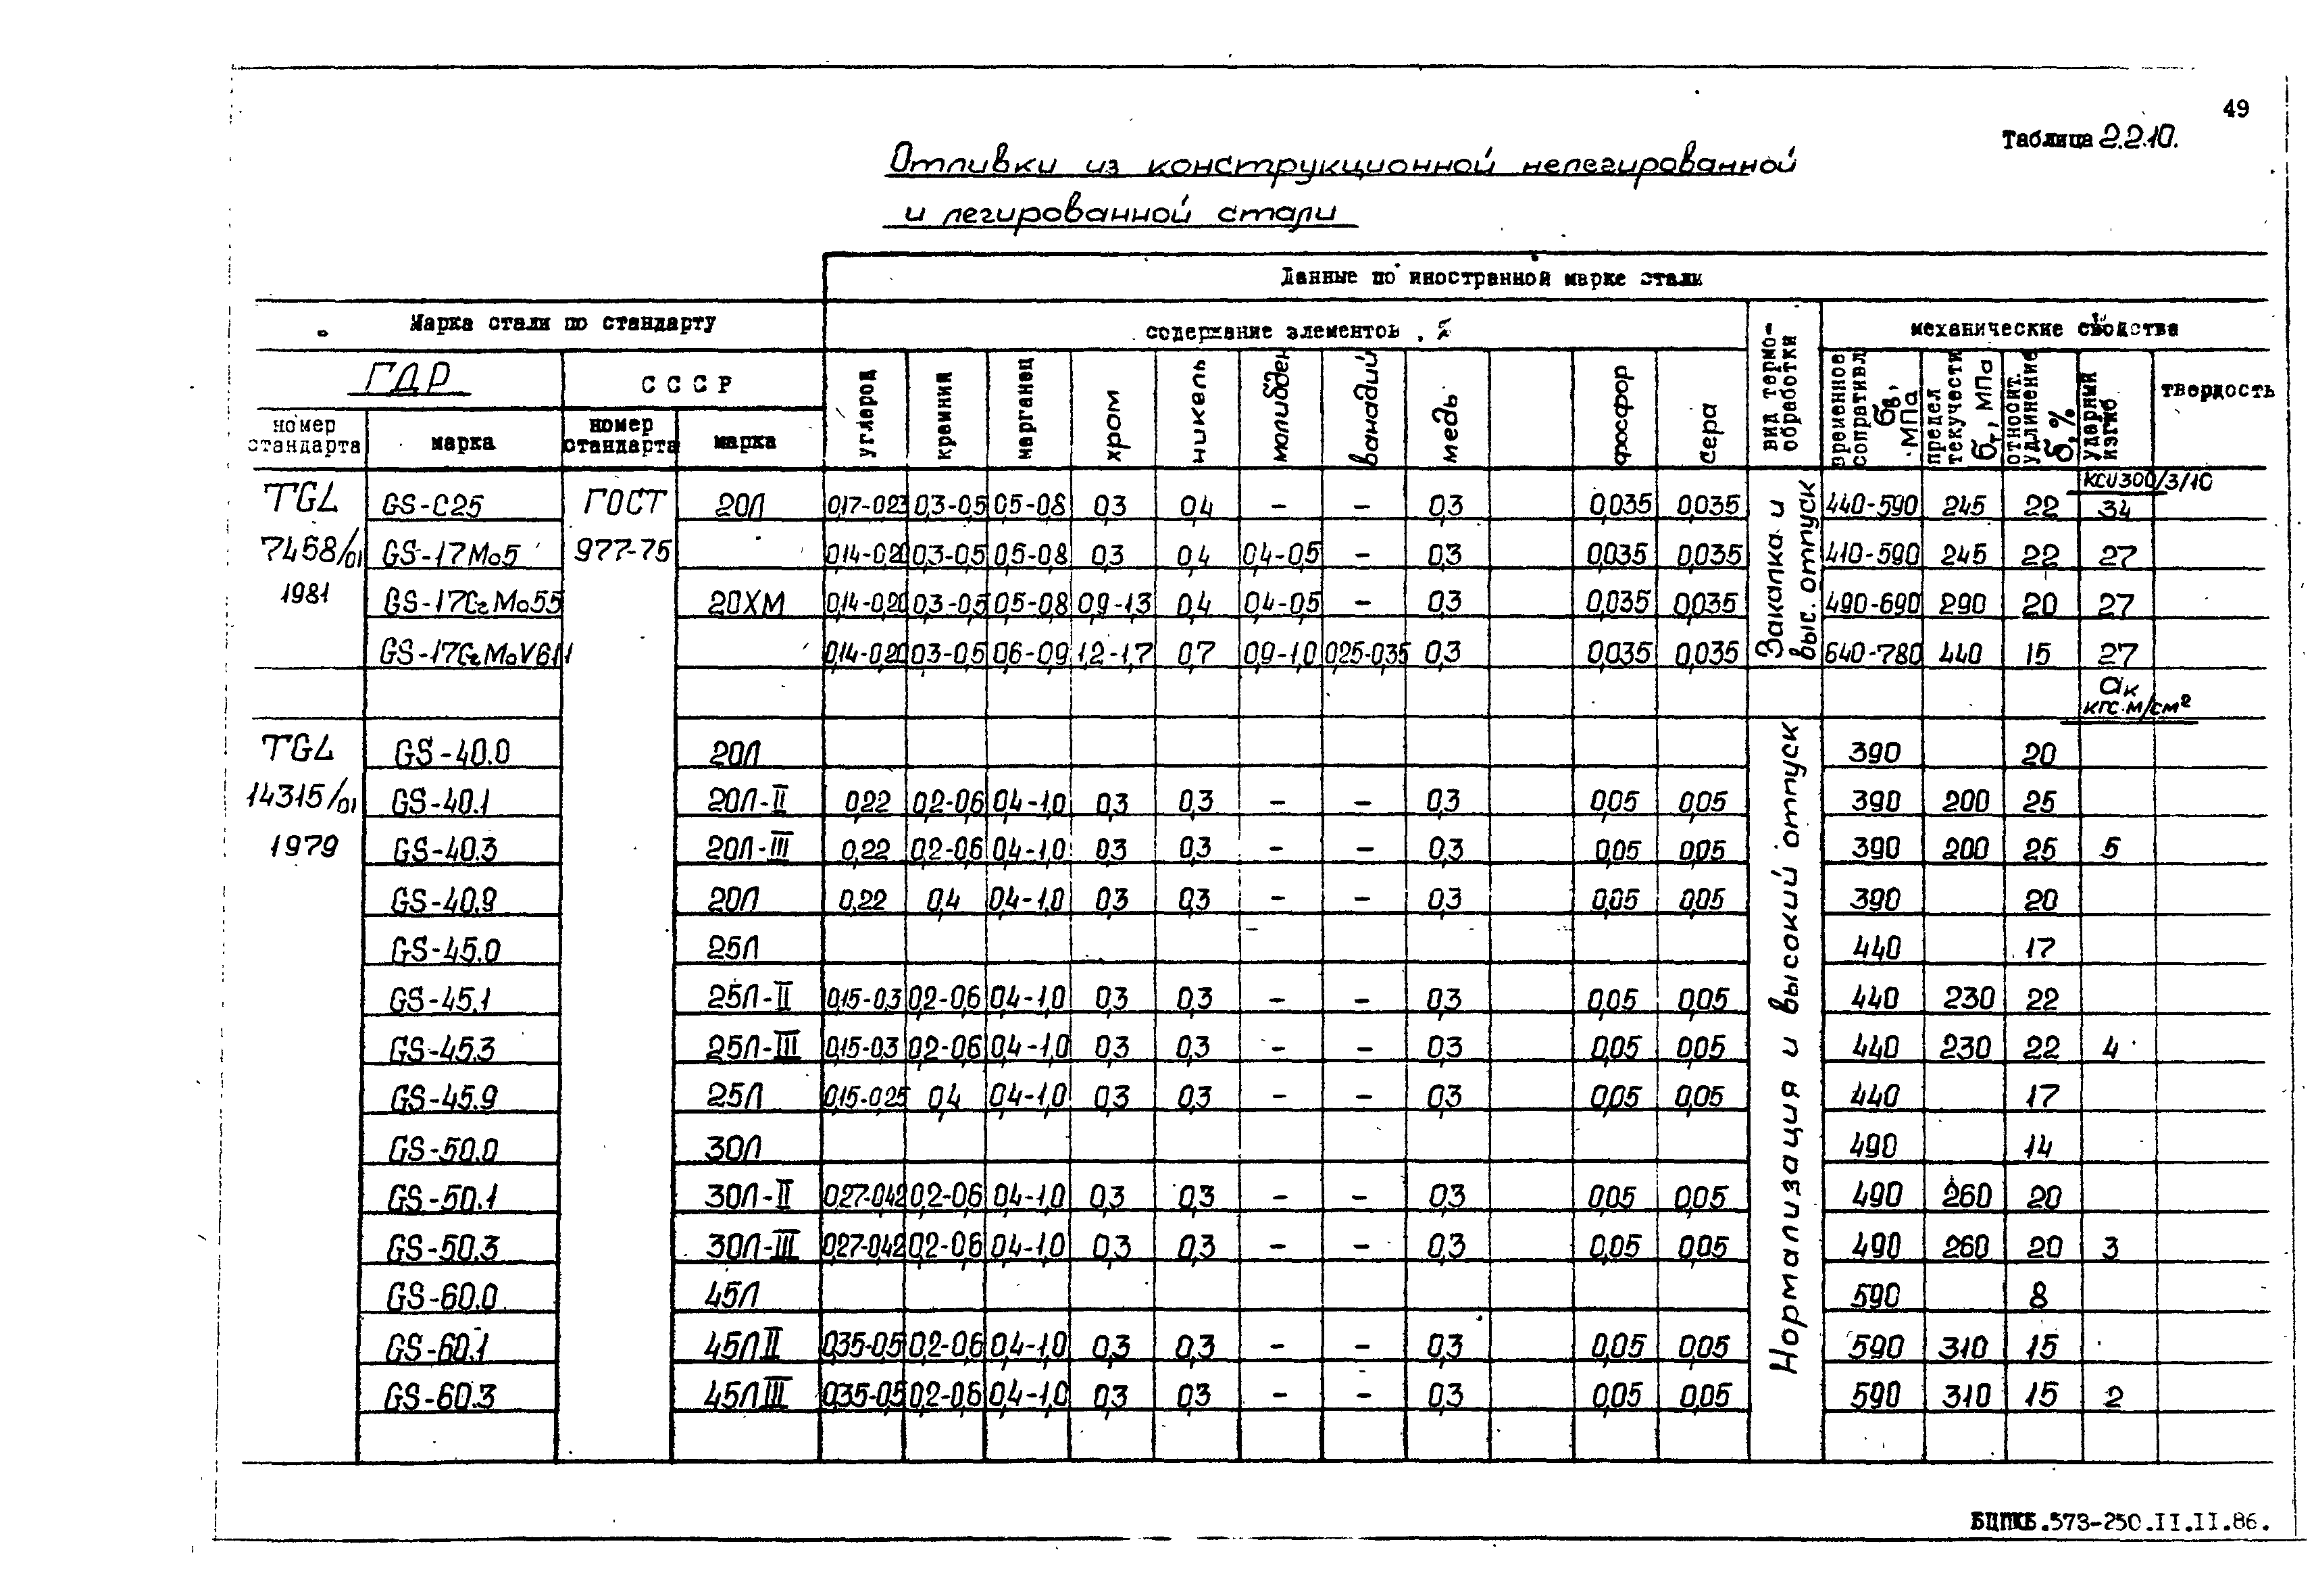 49
Таблица 2.2.10.
Отливки из конструкционной нелегированной
и легированной стали
Данные по иностранной марке стали
Марка стали по стандарту
содержание элементов, %
вид термо-
обработки
механические свойства
ГДР
СССР
номер
стандарта
марка
номер
стандарта
марка
углерод
кремний
марганец
хром
никель
молибден
ванадий
медь
фосфор
сера
временное
сопротивл.
бв,
МПа
предел
текучести
бт, МПа
относит.
удлинение
б, %
ударный
изгиб
твердость
KCU 300/3/10
TGL GS-C25 ГОСТ 20Л 0,17-0,23 0,3-0,5 0,5-0,8 0,3 0,4 – – 0,3 0,035 0,035 440-590 245 22 34
7458/01 GS-17Mo5 977-75 0,14-0,20 0,3-0,5 0,5-0,8 0,3 0,4 0,4-0,5 – 0,3 0,035 0,035 410-590 245 22 27
1981 GS-17CrMo55 20ХМ 0,14-0,20 0,3-0,5 0,5-0,8 0,9-1,3 0,4 0,4-0,5 – 0,3 0,035 0,035 490-690 290 20 27
GS-17CrMoV611 0,14-0,20 0,3-0,5 0,6-0,9 1,2-1,7 0,7 0,9-1,0 0,25-0,35 0,3 0,035 0,035 640-780 440 15 27
Закалка и
выс. отпуск
aк
кгс·м/см²
TGL GS-40.0 20Л 390 20
14315/01 GS-40.1 20Л-II 0,22 0,2-0,6 0,4-1,0 0,3 0,3 – – 0,3 0,05 0,05 390 200 25
1979 GS-40.3 20Л-III 0,22 0,2-0,6 0,4-1,0 0,3 0,3 – – 0,3 0,05 0,05 390 200 25 5
GS-40.9 20Л 0,22 0,4 0,4-1,0 0,3 0,3 – – 0,3 0,05 0,05 390 20
GS-45.0 25Л 440 17
GS-45.1 25Л-II 0,15-0,3 0,2-0,6 0,4-1,0 0,3 0,3 – – 0,3 0,05 0,05 440 230 22
GS-45.3 25Л-III 0,15-0,3 0,2-0,6 0,4-1,0 0,3 0,3 – – 0,3 0,05 0,05 440 230 22 4
GS-45.9 25Л 0,15-0,25 0,4 0,4-1,0 0,3 0,3 – – 0,3 0,05 0,05 440 17
GS-50.0 30Л 490 14
GS-50.1 30Л-II 0,27-0,42 0,2-0,6 0,4-1,0 0,3 0,3 – – 0,3 0,05 0,05 490 260 20
GS-50.3 30Л-III 0,27-0,42 0,2-0,6 0,4-1,0 0,3 0,3 – – 0,3 0,05 0,05 490 260 20 3
GS-60.0 45Л 590 8
GS-60.1 45ЛII 0,35-0,5 0,2-0,6 0,4-1,0 0,3 0,3 – – 0,3 0,05 0,05 590 310 15
GS-60.3 45ЛIII 0,35-0,5 0,2-0,6 0,4-1,0 0,3 0,3 – – 0,3 0,05 0,05 590 310 15 2
Нормализация и высокий отпуск
БЦПКБ.573-250.II.II.86.